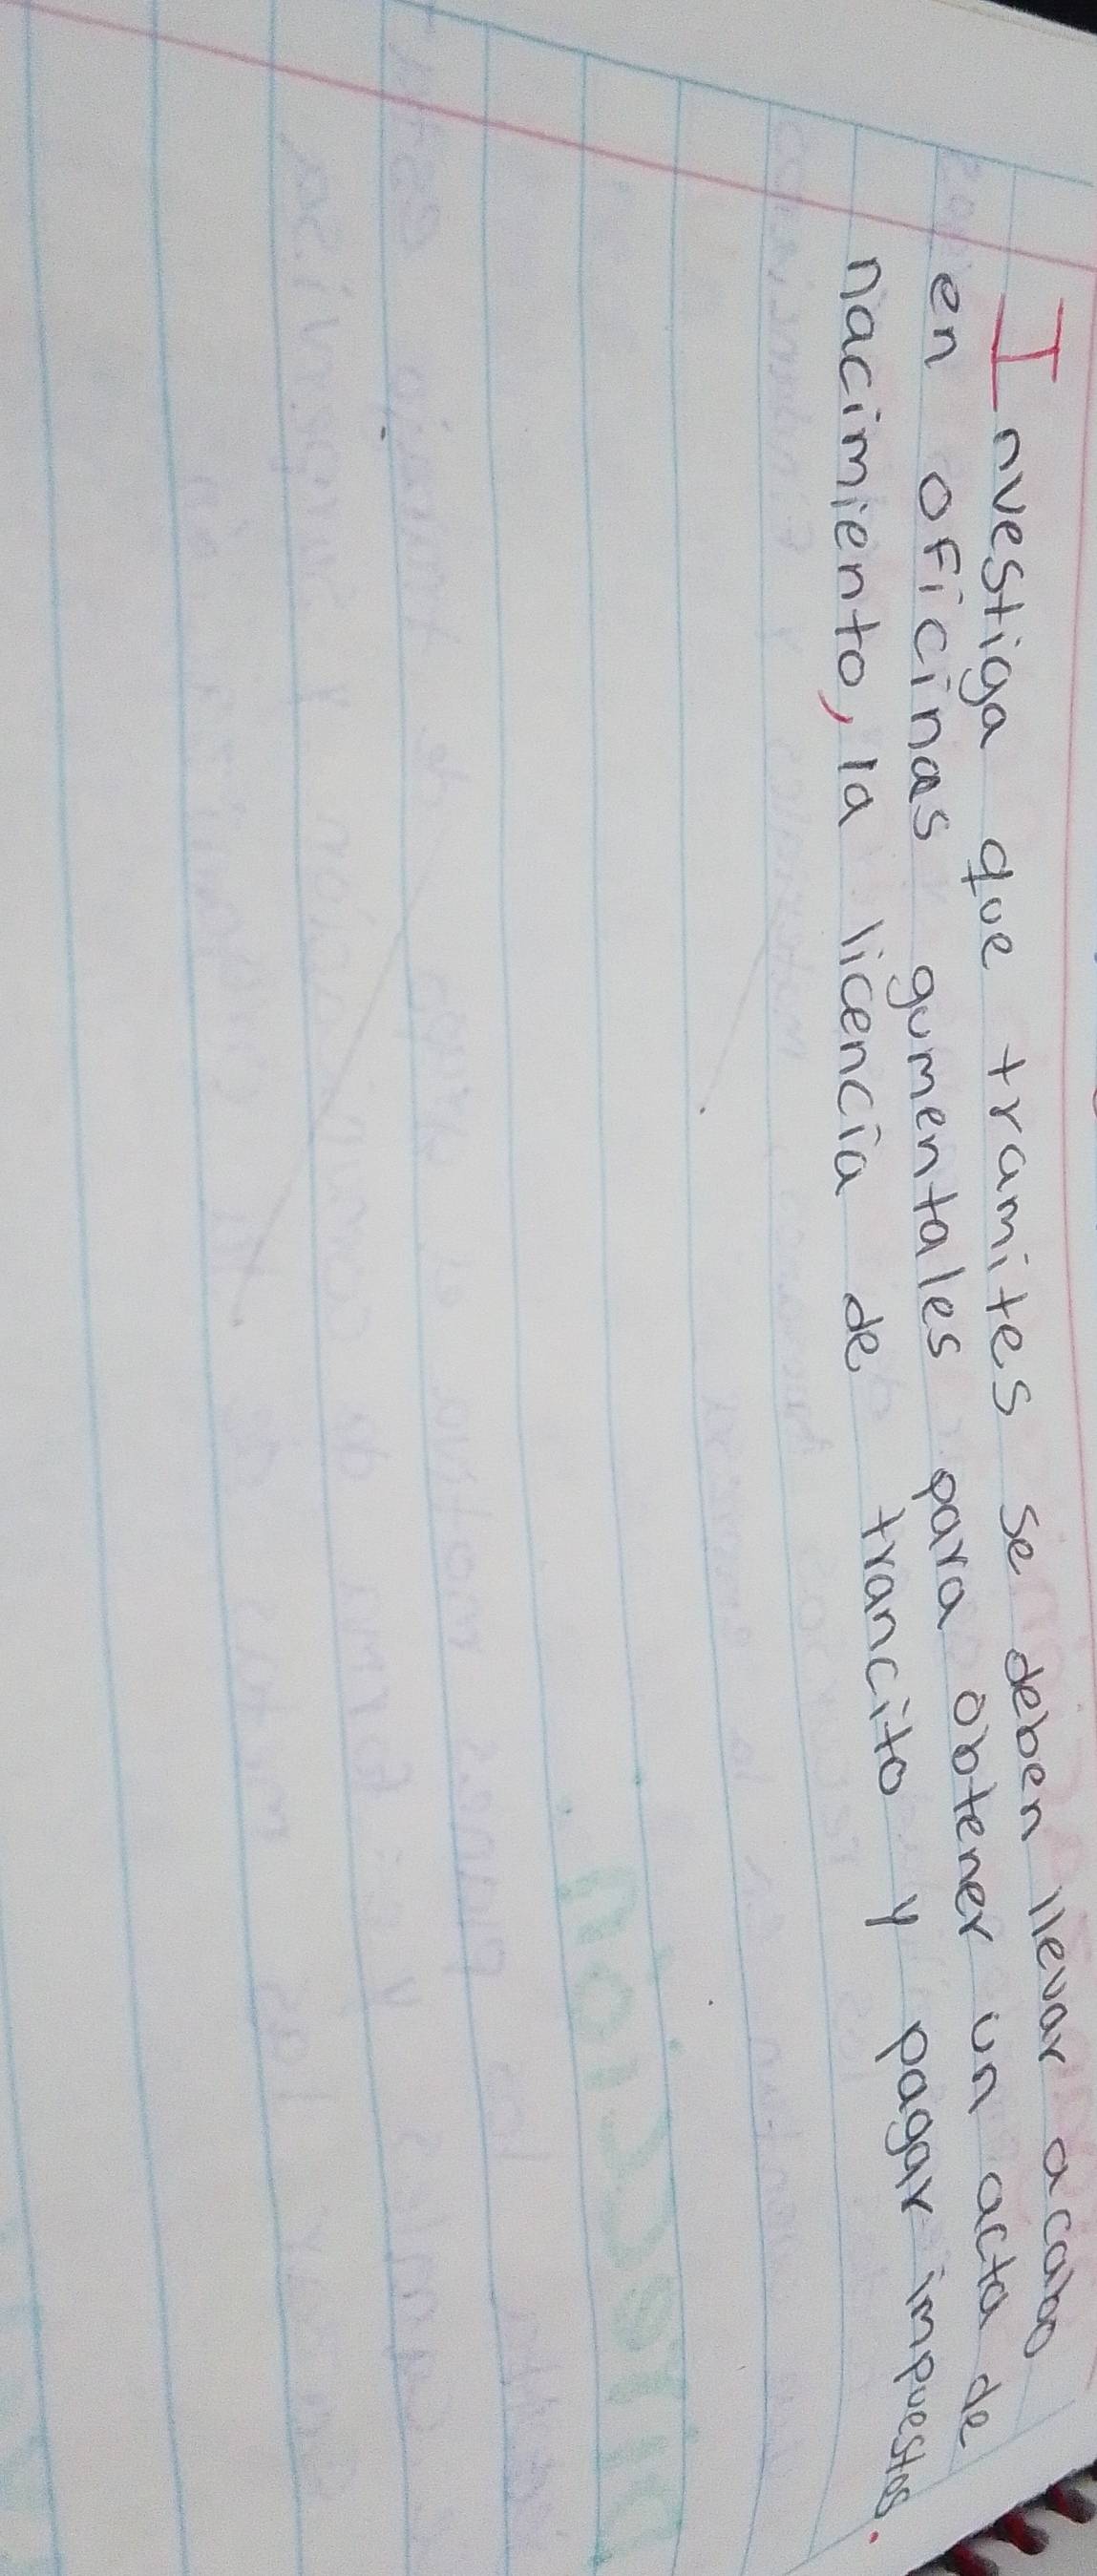 Investiga que tramites se deben llevar acabo
en oficinas gumentales para obtener un acta de
nacimiento, la licencia de trancito y pagar impuestos.